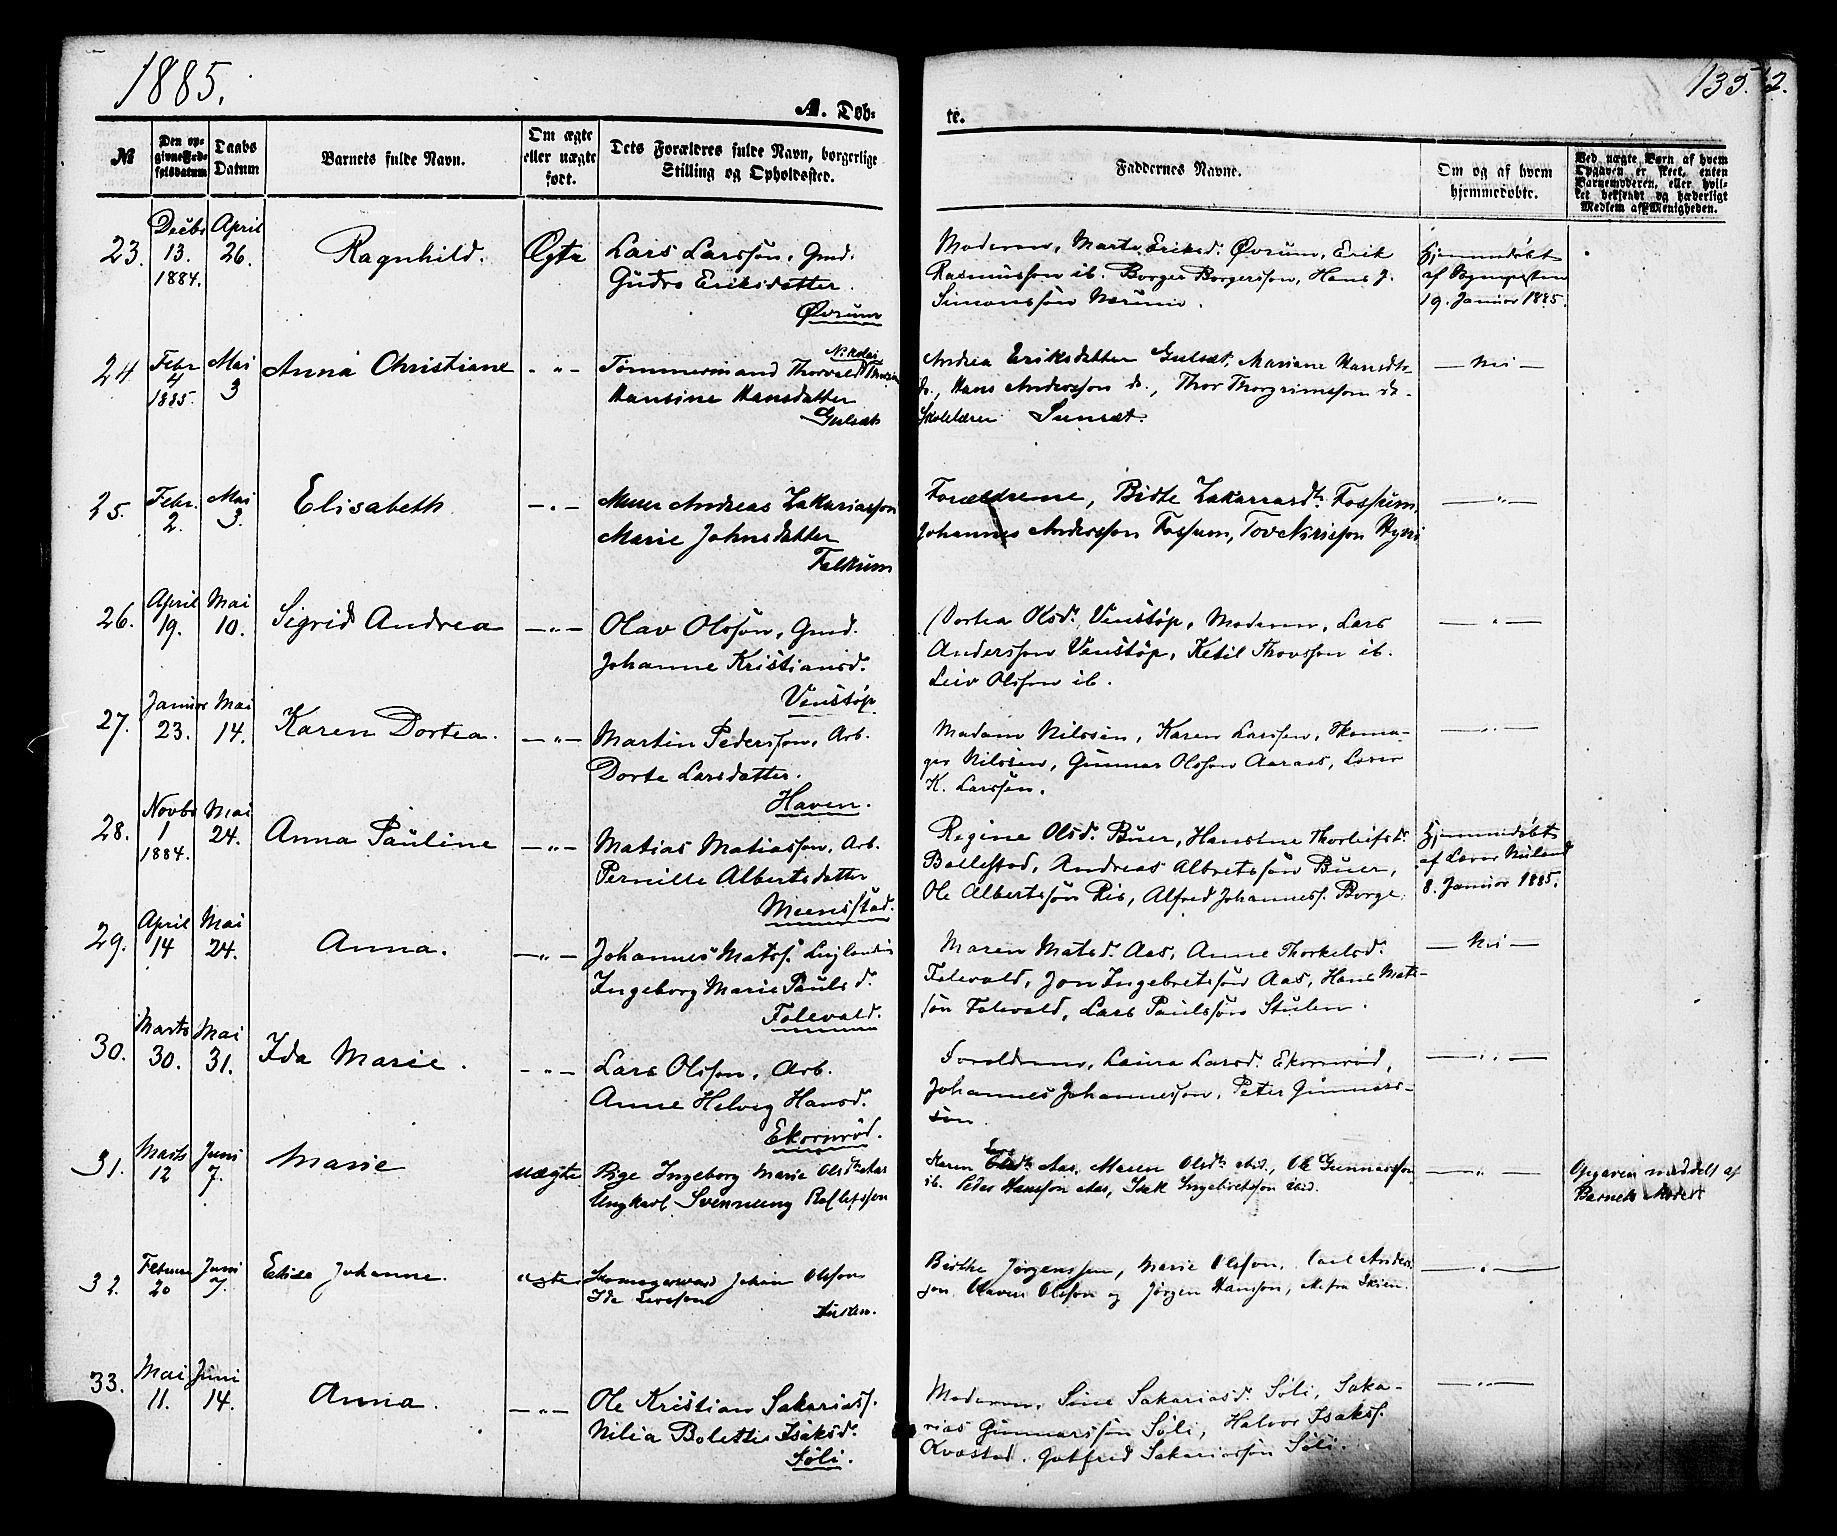 1885.
135.
2.
A. Døb-
te.
№
Den op-
givne Fød-
selsdatum
Daabs
Datum
Barnets fulde Navn.
Om ægte
eller uægte
født.
Dets Forældres fulde Navn, borgerlige
Stilling og Opholdssted.
Faddernes Navne.
Om og af hvem
hjemmedøbte.
Ved uægte Børn af hvem
Opgaven er skeet, enten
Barnemoderen, eller hvil-
ket bekjendt og hæderligt
Medlem af Menigheden.
23.
Decbr
13.
1884.
April
26.
Ragnhild.
Ægte
Lars Larssøn, Gmd.
Gudro Eriksdatter.
Øvrum
Moderen, Marte Eriksd. Øvrum, Erik
Rasmussøn ib. Borger Borgerssøn, Hans J.
Simonssøn Nærum.
Hjemmedøbt
af
19. Januar 1885.
24
Febr
4
1885.
Mai
3
Anna Christiane
- " -
Nikolai
Tømmermand Thorvald
Hansine Hansdatter
Gulsæt
Andrea Eriksdatter Gulsæt, Mariane Hansdtr
do., Hans Anderssøn do., Thor Thorgrimsson do -
Skolelærer
- Nei -
25.
Febr.
2.
Mai
3.
Elisabeth
- " -
Murer Andreas Zakariasson
Marie Johnsdatter
Falkum
Forældrene, Birte Zakariasdtr. Fossum,
Johannes Anderssøn Fossum,
- " -
26.
April
19.
Mai
10.
Sigrid Andrea
- " -
Olav Olssøn, Gmd.
Johanne Kristiansd.
Venstøp
Dortea Olsd. Venstøp, Moderen, Lars
Anderssøn Venstøp, Ketil Thovssøn ib.
Leiv Olssøn ib.
- " -
27.
Januar
23.
Mai
14.
Karen Dortea.
- " -
Martin Pederssøn, Arb.
Dorte Larsdatter.
Haven.
Madam Nilssen, Karen Larssen, Skoma-
ger Nilssen, Gunnar Olssøn Aaraas, Lærer
K. Larssøn.
- " -
28.
Novbr
1
1884.
Mai
24.
Anna Pauline
- " -
Matias Matiassøn, Arb.
Pernille Albertsdatter
Meensstad.
Regine Olsd. Buer, Hanstne Thorleifsd.
Ballestad, Andreas Albretssøn Buer,
Ole Albertssøn Ris, Alfred Johanness. Borge.
Hjemmedøbt
af Lærer
8. Januar 1885.
29.
April
14
Mai
24.
Anna.
- " -
Johannes Matss.
Ingeborg Marie Paulsd.
Folevald.
Maren Matsd. Aas, Anne Thorkelsd.
Folevald, Jon Ingebretssøn Aas, Hans Mats-
søn Folevald, Lars Paulssøn Stulen.
- Nei -
30.
Marts
30.
Mai
31.
Ida Marie.
- " -
Lars Olssøn, Arb.
Anne Helvig Hansd.
Ekornrød.
Forældrene, Laura Larsd. Ekornrød,
Johannes Johannessøn, Peter Gunnars-
søn.
- " -
31.
Marts
12
Juni
7.
Marie
uægte
Pige Ingeborg Marie Olsdtr Aas
Ungkarl Svennung
Karen Aas, Maren Olsdtr ibid., Ole Gunnarsson
ib. Peder Hansson Aas, Isak Ingebretsson ibid.
- " -
Opgaven meddelt af
Barnets Moder
32.
Februar
20
Juni
7.
Johanne.
ægte
Skomagersvend Johan Olsson
Ida
Birthe Jørgenssen, Marie Olsson, Carl Anders-
son, Olsson og Jørgen Hansson, Alle fra Skien.
- " -
33.
Mai
11.
Juni
14.
Anna.
- " -
Ole Kristian Sakariass.
Nilia Bolette Isaksd.
Søli.
Moderen, Sine Sakariasd. Søli, Saka-
rias Gunnarssøn Søli, Halvor Isakss.
Kvastad, Gotfred Sakariassøn Søli.
- " -